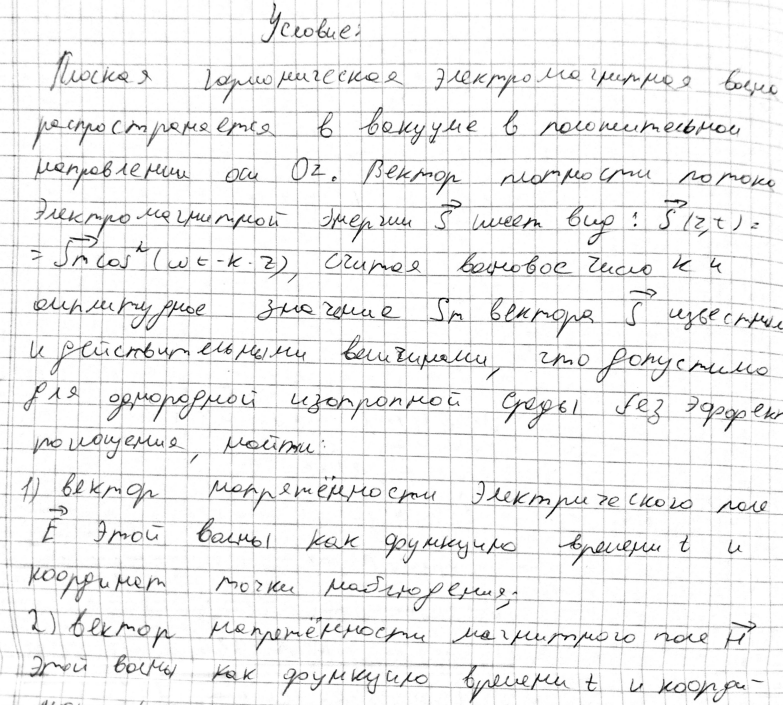 Условие:
Плоская гармоническая электромагнитная волна
распространяется в вакууме в положительном
направлении оси Oz. Вектор плотности потока
электромагнитной энергии S⃗ имеет вид: S⃗(z,t)=
= S⃗m cos²(ωt-k·z), считая волновое число k и
амплитудное значение Sm вектора S⃗ известным
и действительными величинами, что допустимо
для однородной изотропной среды без эффект
поглощения, найти:
1) вектор напряжённости электрического поле
E⃗ этой волны как функцию времени t и
координат точки наблюдения;
2) вектор напряжённости магнитного поле H⃗
этой волны как функцию времени t и коорди-